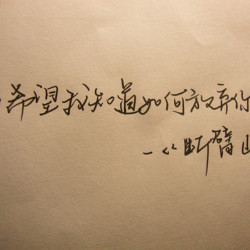 希望我知道如何放弃你
——《断臂山